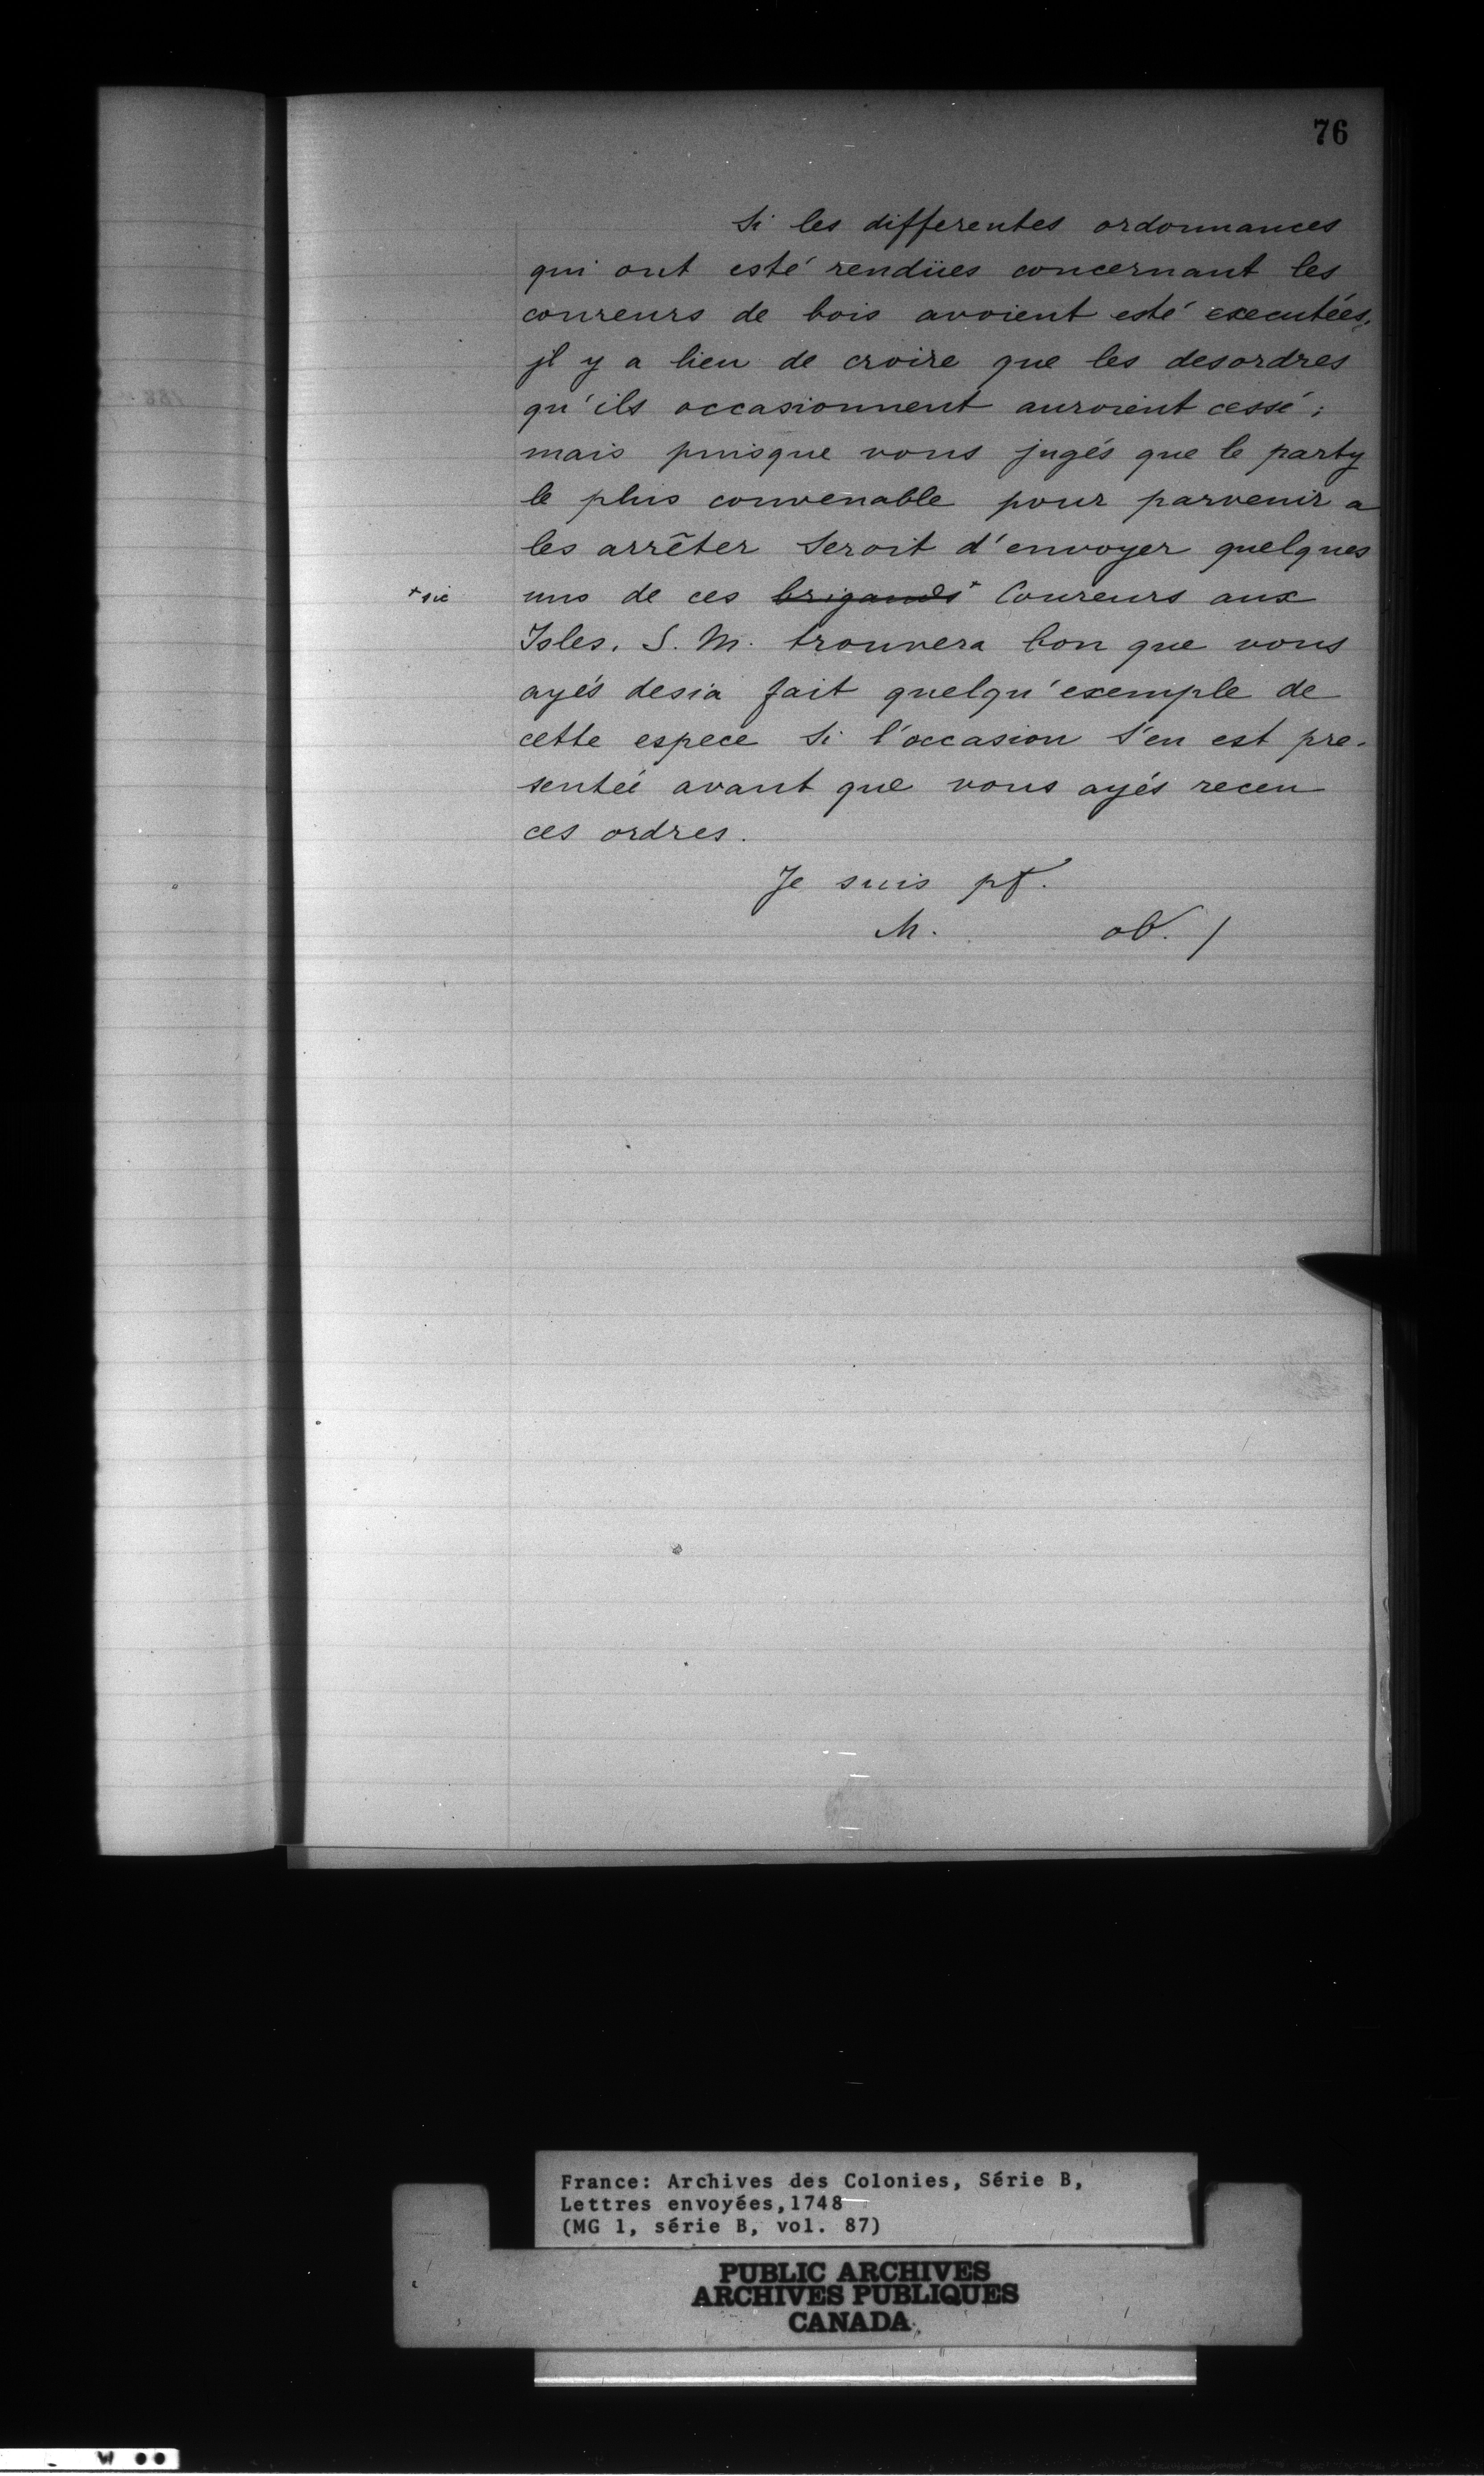 76
Si les differentes ordonnances
qui ont esté rendües concernant les
coureurs de bois avoient esté executées,
jl y a lieu de croire que les desordres
qu'ils occasionnent auroient cessé;
mais puisque vous jugés que le party
le plus convenable pour parvenir a
les arrêter seroit d'envoyer quelques
+ sic uns de ces brigands+ Coureurs aux
Isles. S. M. trouvera bon que vous
ayés desia fait quelqu'exemple de
cette espece si l'occasion s'en est pre-
sentée avant que vous ayés receu
ces ordres.
Je suis pt.
M. ob. /
France: Archives des Colonies, Série B,
Lettres envoyées, 1748
(MG 1, série B, vol. 87)
PUBLIC ARCHIVES
ARCHIVES PUBLIQUES
CANADA